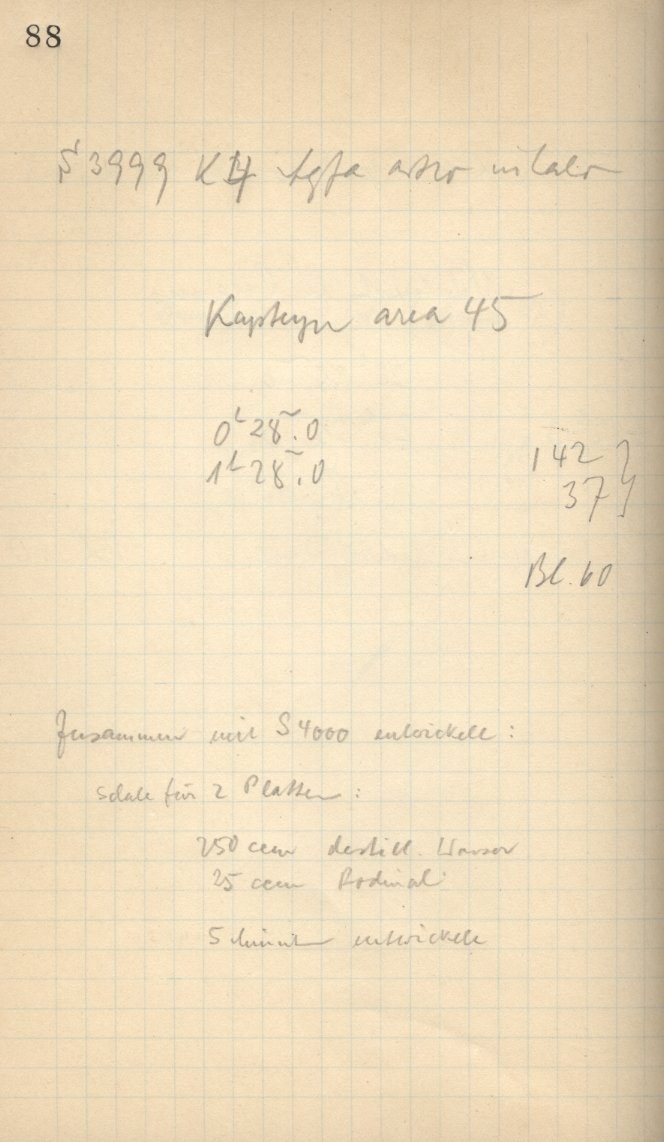 88
S 3999 K4 Agfa astro
Kapteyn area 45
0ʰ 28ᵐ.0
1ʰ 28ᵐ.0
142 }
37 }
Bl. 60
Zusammen mit S 4000 entwickelt:
Schale für 2 Platten:
250 ccm destill. Wasser
25 ccm Rodinal
5 Minuten entwickelt